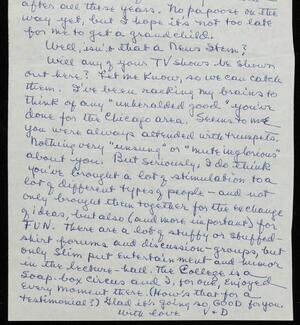 after all these years. No papoose on the
way yet, but I hope it's not too late
for me to get a grandchild.
Well, isn't that a News Item?
Will any of your TV shows be shown
out here? Let me know, so we can catch
them. I've been racking my brains to
think of any "unheralded good" you've
done for the Chicago area. Seems to me
you were always attended with trumpets.
Nothing very "unsung" or "mute inglorious"
about you. But seriously, I do think
you've brought a lot of stimulation to a
lot of different types of people - and not
only brought them together for the exchange
of ideas, but also (and more important) for
FUN. There are a lot of stuffy or stuffed-
shirt forums and discussion-groups, but
only Slim put entertainment and humor
in the lecture-hall. The College is a
Soap-box circus and I, for one, enjoyed
every moment there. (How's that for a
testimonial?) Glad it's going so good for you.
With love